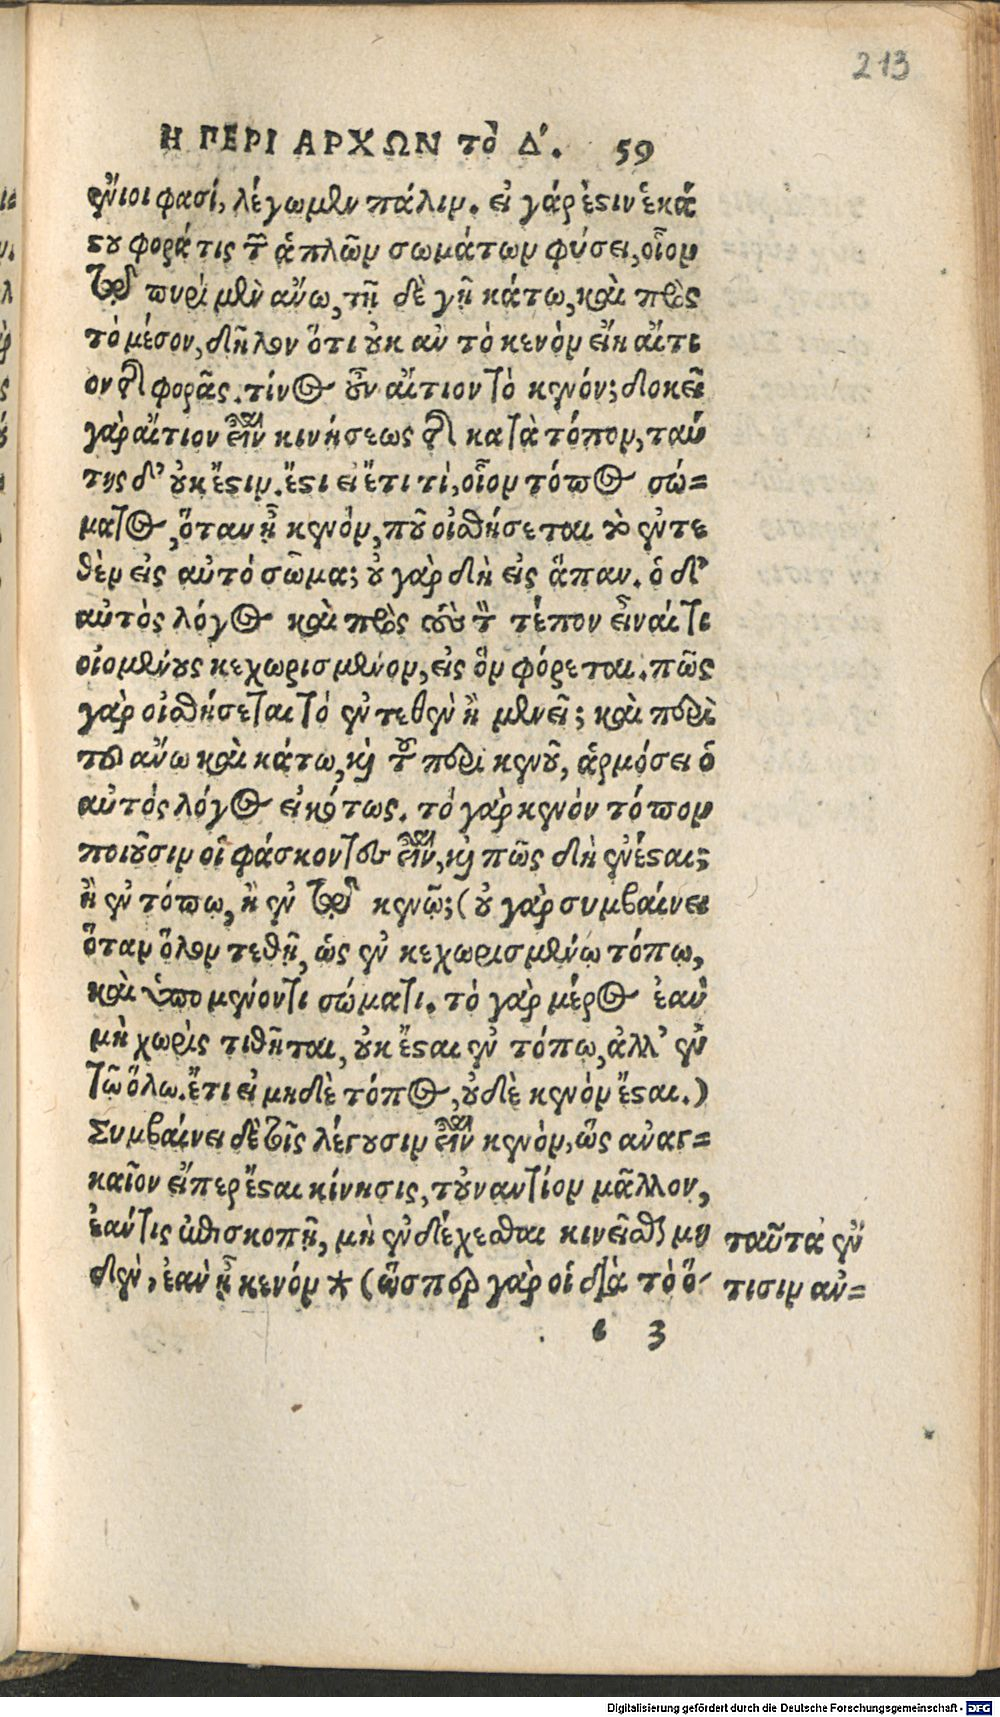 213
Η ΠΕΡΙ ΑΡΧΩΝ το Δ΄. 59
ἔνιοι φασί, λέγωμεν πάλιν. εἰ γάρ ἐστιν ἑκά
στου φορά τις τῶν ἁπλῶν σωμάτων φύσει, οἷον
τῷ πυρὶ μὲν ἄνω, τῇ δὲ γῇ κάτω, καὶ πρὸς
τὸ μέσον, δῆλον ὅτι οὐκ ἂν τὸ κενὸν εἴη αἴτι
ον τῆς φορᾶς. τίνος οὖν αἴτιον τὸ κενόν; δοκεῖ
γὰρ αἴτιον εἶναι κινήσεως τῆς κατὰ τόπον, ταύ
της δ' οὐκ ἔστιν. ἔτι εἰ ἔστι τί, οἷον τόπος σώ=
ματος, ὅταν ᾖ κενόν, ποῦ οἰσθήσεται τὸ ἐντε
θὲν εἰς αὐτὸ σῶμα; οὐ γὰρ δὴ εἰς ἅπαν. ὁ δ'
αὐτὸς λόγος καὶ πρὸς τοὺς τὸν τόπον εἶναί τι
οἰομένους κεχωρισμένον, εἰς ὃν φέρεται. πῶς
γὰρ οἰσθήσεται τὸ ἐντεθὲν ἢ μενεῖ; καὶ περὶ
τοῦ ἄνω καὶ κάτω, καὶ τοῦ περὶ κενοῦ, ἁρμόσει ὁ
αὐτὸς λόγος εἰκότως. τὸ γὰρ κενὸν τόπον
ποιοῦσιν οἱ φάσκοντες εἶναι, καὶ πῶς δὴ ἐνέσται;
ἢ ἐν τόπῳ, ἢ ἐν τῷ κενῷ; (οὐ γὰρ συμβαίνει
ὅταν ὅλον τεθῇ, ὡς ἐν κεχωρισμένῳ τόπῳ,
καὶ ὑπομένοντι σώματι. τὸ γὰρ μέρος ἐὰν
μὴ χωρὶς τιθῆται, οὐκ ἔσται ἐν τόπῳ, ἀλλ' ἐν
τῷ ὅλῳ. ἔτι εἰ μηδὲ τόπος, οὐδὲ κενὸν ἔσται.)
Συμβαίνει δὲ τοῖς λέγουσιν εἶναι κενὸν, ὡς ἀναγ=
καῖον εἴπερ ἔσται κίνησις, τοὐναντίον μᾶλλον,
ἐάν τις ἐπισκοπῇ, μὴ ἐνδέχεσθαι κινεῖσθαι μη
δὲν, ἐὰν ᾖ κενόν * (ὥσπερ γὰρ οἱ διὰ τὸ ὅ-
ταῦτα ἔν
τισιν ἀν=
e 3
Digitalisierung gefördert durch die Deutsche Forschungsgemeinschaft - DFG